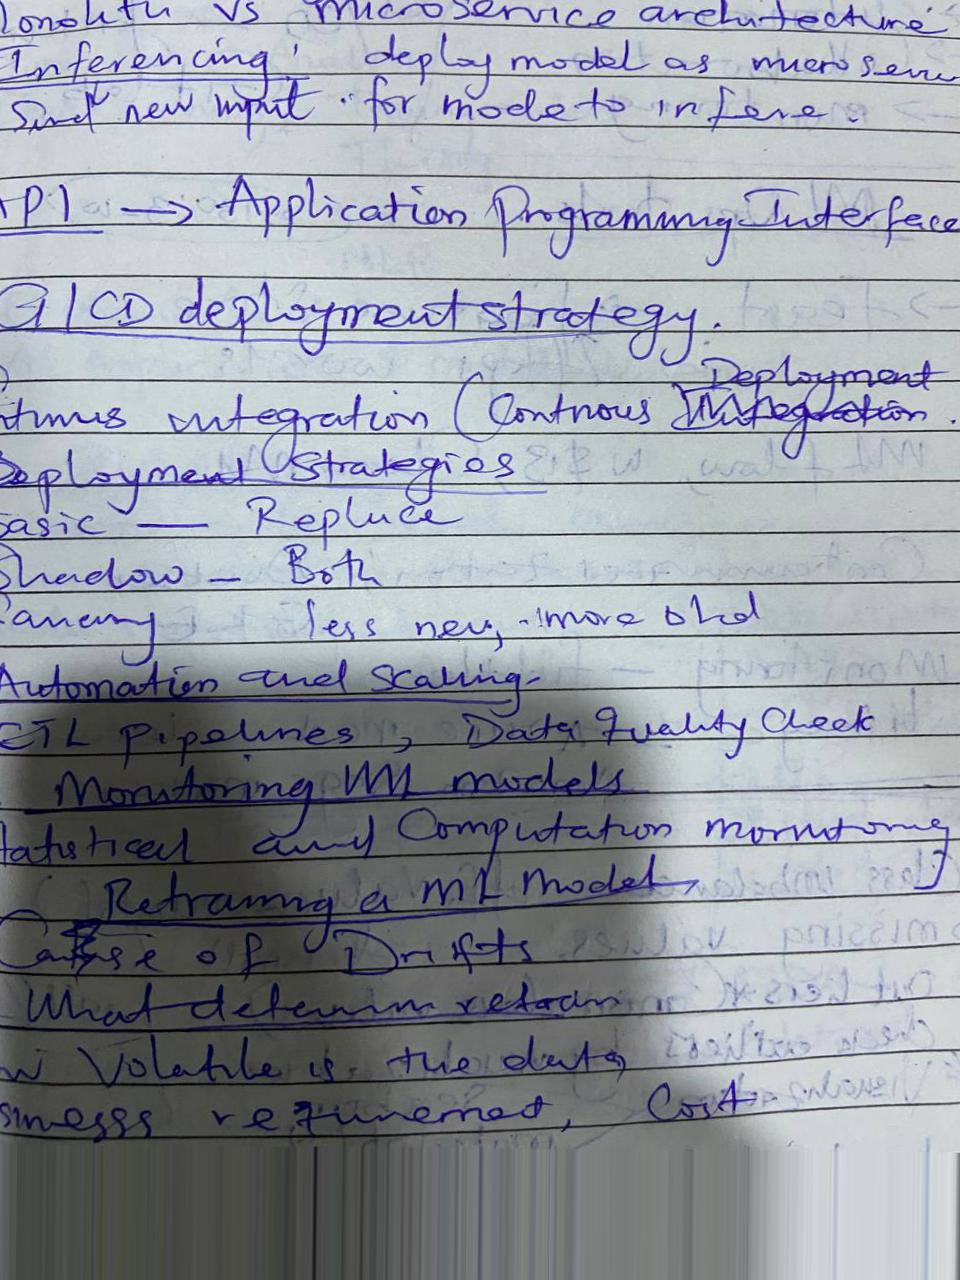 onolith vs Microservice architecture
Inferencing: deploy model as microserv
Send new input for mode to infere.
API → Application Programming Interface
CI/CD deployment strategy.
Deployment
tinuus integration (Continous Integration.
Deployment Strategies
Basic — Replace
Shadow — Both
Canary less new, more old
Automation and Scaling
ETL pipelines, Data Quality Check
Monitoring ML models
tatistical and Computation monitoring
Retraining a ML Model
Cause of Drifts
What determin retrain
w Volatile is the data
siness requirement, Cost